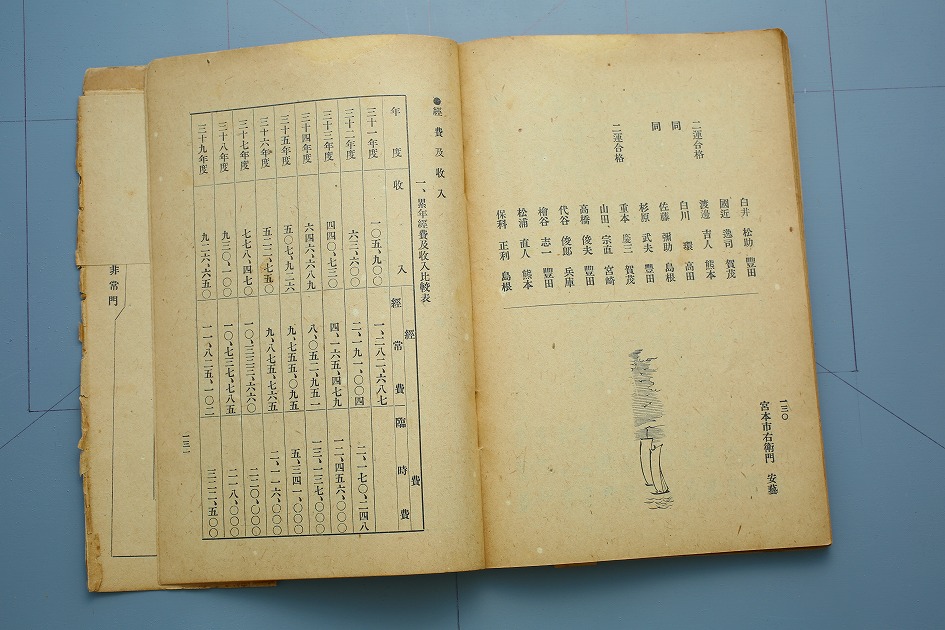 一三〇
宮本市右衛門 安藝
白井 松助 豊田
國近 司 賀茂
二運合格 渡邊 吉人 熊本
同 白川 環 高田
同 佐藤 彌助 島根
杉原 武夫 豊田
二運合格 重本 慶三 賀茂
山田 宗直 宮崎
高橋 俊夫 豊田
代谷 俊郎 兵庫
檜谷 志一 豊田
松浦 直人 熊本
保科 正利 島根
●經費及收入
一、累年經費及收入比較表
經費
年度 收入 經常費 臨時費
三十一年度 一〇五、九〇〇 一、二八二、六八七
三十二年度 六三、六〇〇 二、一九一、〇〇四 二、一七〇、二四八
三十三年度 四四〇、七三〇 四、一六五、四七九 一二、四五六、〇〇〇
三十四年度 六四六、六八九 八、〇五二、九五一 一三、一三七、〇〇〇
三十五年度 五〇七、九二六 九、七五五、〇九五 五、三四一、〇〇〇
三十六年度 五二二、七五〇 九、八七五、七六五 二、一一六、〇〇〇
三十七年度 七七八、四七〇 一〇、三三三、六六〇 二二〇、〇〇〇
三十八年度 九三〇、一〇〇 一〇、七三七、七八五 二一八、〇〇〇
三十九年度 九二六、六五〇 一一、八二五、一〇二 三二二、五〇〇
一三一
非常門